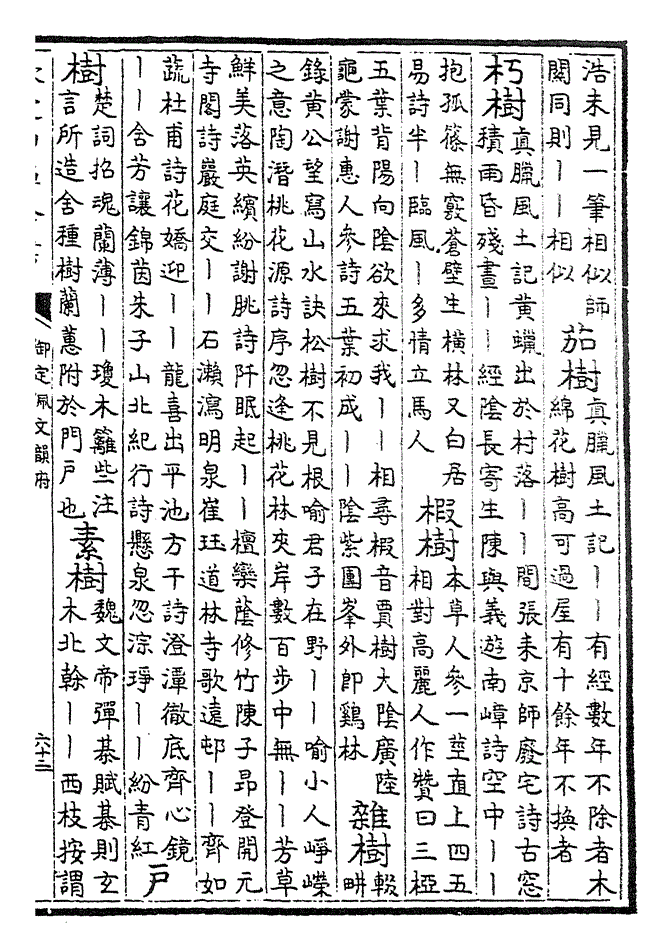 浩未見一筆相似師
闗同則丨丨相似
茄樹
真臘風土記丨丨有經數年不除者木
綿花樹高可過屋有十餘年不換者
朽樹
真臘風土記黄蠟出於村落丨丨間張耒京師廢宅詩古窓
積雨昏殘畫丨丨經陰長寄生陳與義遊南嶂詩空中丨丨
抱孤篠無竅蒼壁生横林又白居
易詩半丨臨風丨多情立馬人
椵樹
本草人參一莖直上四五
相對高麗人作贊曰三椏
五葉背陽向陰欲來求我丨丨相尋椵音賈樹大陰廣陸
龜蒙謝惠人參詩五葉初成丨丨陰紫團峯外即鷄林
雜樹
輟
畊
錄黄公望寫山水訣松樹不見根喻君子在野丨丨喻小人崢嶸
之意陶潛桃花源詩序忽逢桃花林夾岸數百步中無丨丨芳草
鮮美落英繽紛謝朓詩阡眠起丨丨檀欒蔭修竹陳子昂登開元
寺閣詩巖庭交丨丨石瀨瀉明泉崔珏道林寺歌遠邨丨丨齊如
蔬杜甫詩花嬌迎丨丨龍喜出平池方干詩澄潭徹底齊心鏡
丨丨含芳讓錦茵朱子山北紀行詩懸泉忽淙琤丨丨紛青紅
戸
樹
楚詞招魂蘭薄丨丨瓊木籬些注
言所造舍種樹蘭蕙附於門戸也
素樹
魏文帝彈棊賦棊則玄
木北幹丨丨西枝按謂
御定佩文韻府
六十二